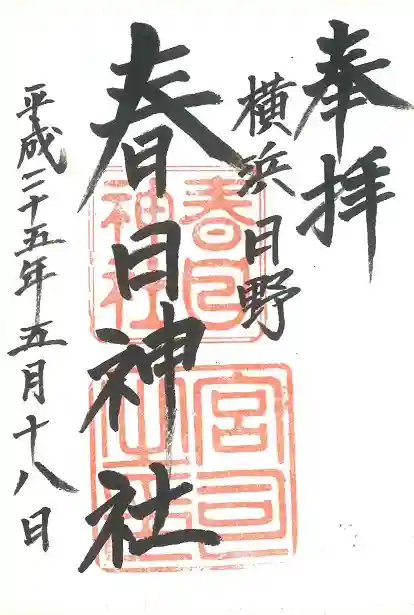 奉拝
横浜日野
春日神社
平成二十五年五月十八日
春日
神社
宮司
之印